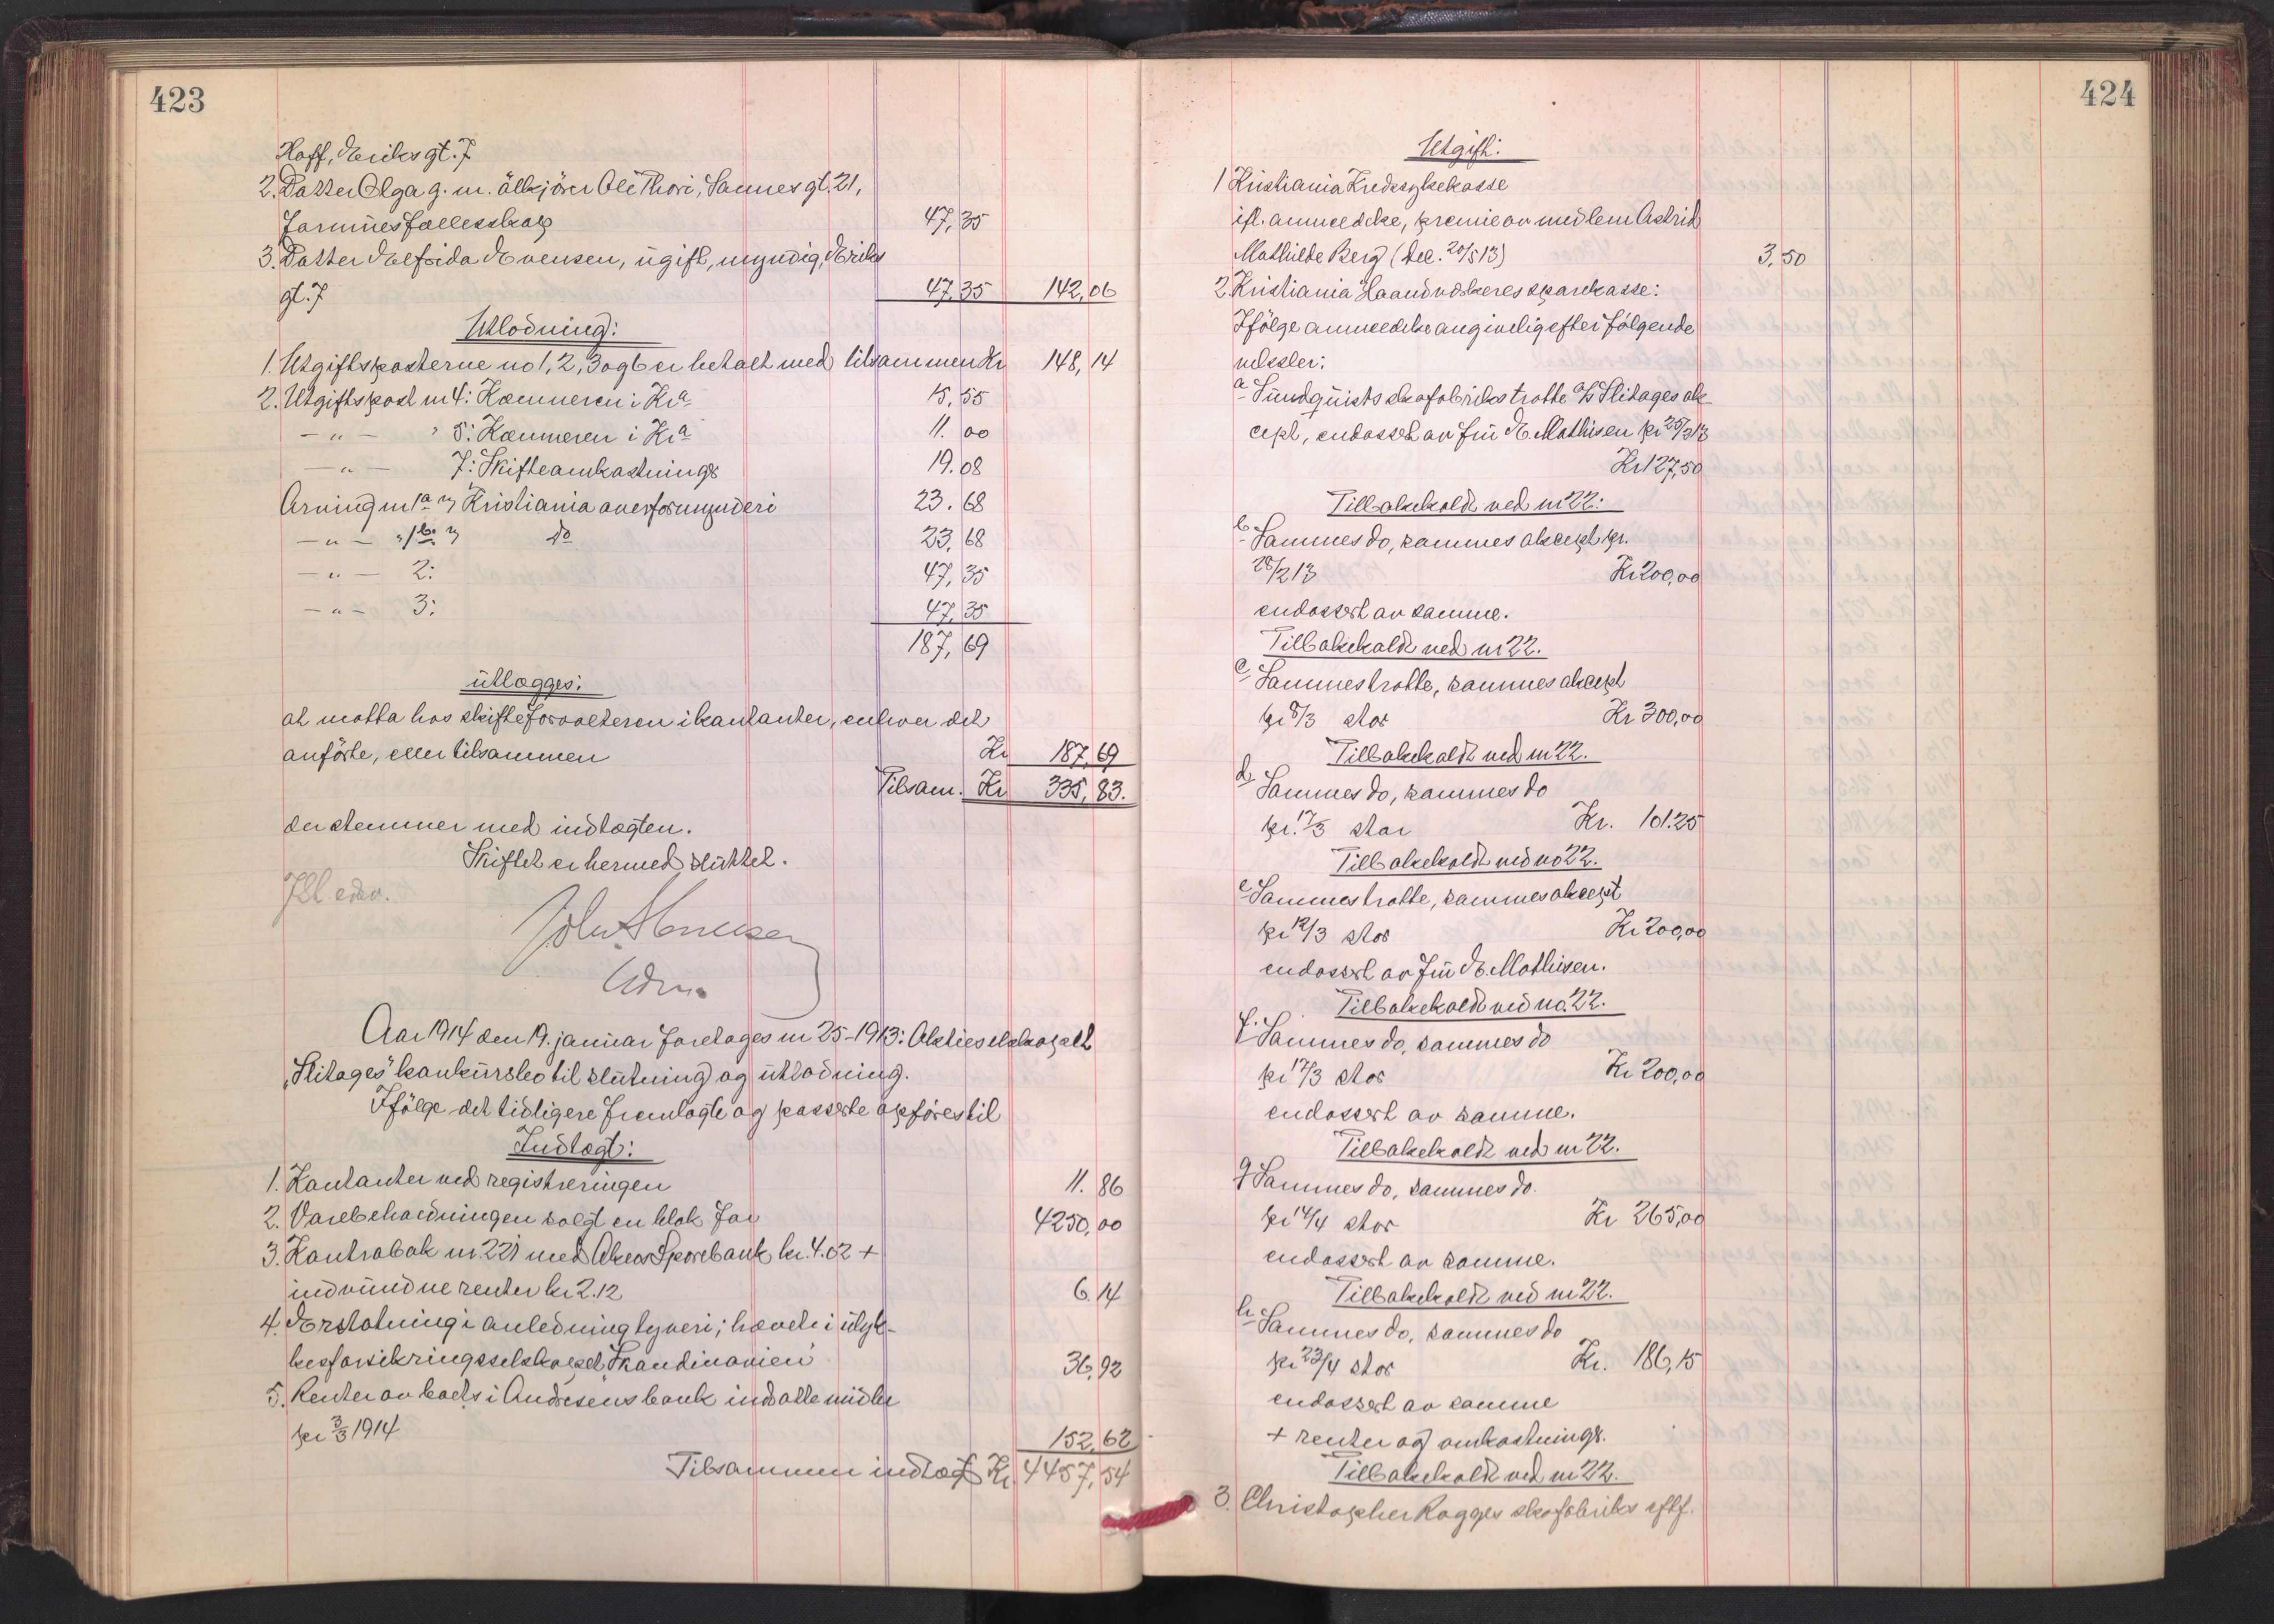 423
Hoff, Eriks gt. 7
2. Datter Olga g. m. ölkjörer Ole Thori, Sannergt. 21,
formuesfællesskap 47,35
3. Datter Elfrida Evensen, ugift, myndig, Eriks
gt. 7 47,35 142,06
Utlodning:
1. Utgiftsposterne no 1, 2, 3 og 6 er betalt med tilsammen Kr 148,14
2. Utgiftspost nr 4: Kæmneren i Kra 15,55
— " — " 5: Kæmneren i Kra 11.00
— " — 7: Skifteomkostninger 19.08
Arving nr 1a Kristiania overformynderi 23.68
— " — " 1b do 23,68
— " — 2: 47,35
— " — 3: 47,35
187,69
utlægges:
at motta hos skifteforvalteren i kontanter, enhver det
anförte, eller tilsammen Kr 187,69
Tilsam. Kr 335,83.
der stemmer med indtægten.
Skiftet er hermed sluttet.
Edm.
Aar 1914 den 19. januar foretages nr 25-1913: Aktieselskapet
"Slitages" konkursbo til slutning og utlodning.
Ifölge det tidligere fremlagte og passerte opföres til
Indtægt:
1. Kontanter ved registreringen 11.86
2. Varebeholdningen solgt en blok for 4250,00
3. Kontrabok nr. 221 med Akers Sparebank kr. 4.02 +
indvundne renter kr 2.12 6.14
4. Erstatning i anledning tyveri; hævet i ulyk-
kesforsikringsselskapet "Skandinavien" 36,92
5. Renter av boets i Andresens bank indsatte midler
pr 3/3 1914 152,62
Tilsammen indtægt Kr. 4457,54
424
Utgift:
1 Kristiania Kredssykekasse
ifl. anmeldelse, premie av medlem Astrid
Mathilde Berg (dec. 20/5 13) 3,50
2. Kristiania Haandverkeres sparekasse:
Ifölge anmeldelse angivelig efter fölgende
veksler:
a Sundquists skofabriks tratte A/S Slitages ak-
cept, endossert av Fru E. Mathisen pr 25/3 13
Kr 127,50
Tilbakekaldt ved nr 22:
b Sammes do, sammes akcept pr.
28/2 13 Kr 200,00
endossert av samme.
Tilbakekaldt ved nr 22.
c Sammes tratte, sammes akcept
pr 8/3 stor Kr 300,00
Tilbakekaldt ved nr 22.
d Sammes do, sammes do
pr. 17/3 stor Kr. 101.25
Tilbakekaldt ved no 22.
e Sammes tratte, sammes akcept
pr 12/3 stor Kr 200,00
endossert av Fru E. Mathisen.
Tilbakekaldt ved no. 22.
f. Sammes do, sammes do
pr 17/3 stor Kr 200,00
endossert av samme.
Tilbakekaldt ved nr 22.
g Sammes do, sammes do.
pr 14/4 stor Kr 265,00
endossert av samme.
Tilbakekaldt ved nr 22.
h Sammes do, sammes do
pr 23/4 stor Kr. 186,15
endossert av samme
+ renter og omkostninger.
Tilbakekaldt ved nr 22.
3. Christopher Rogges skofabriks eftf.